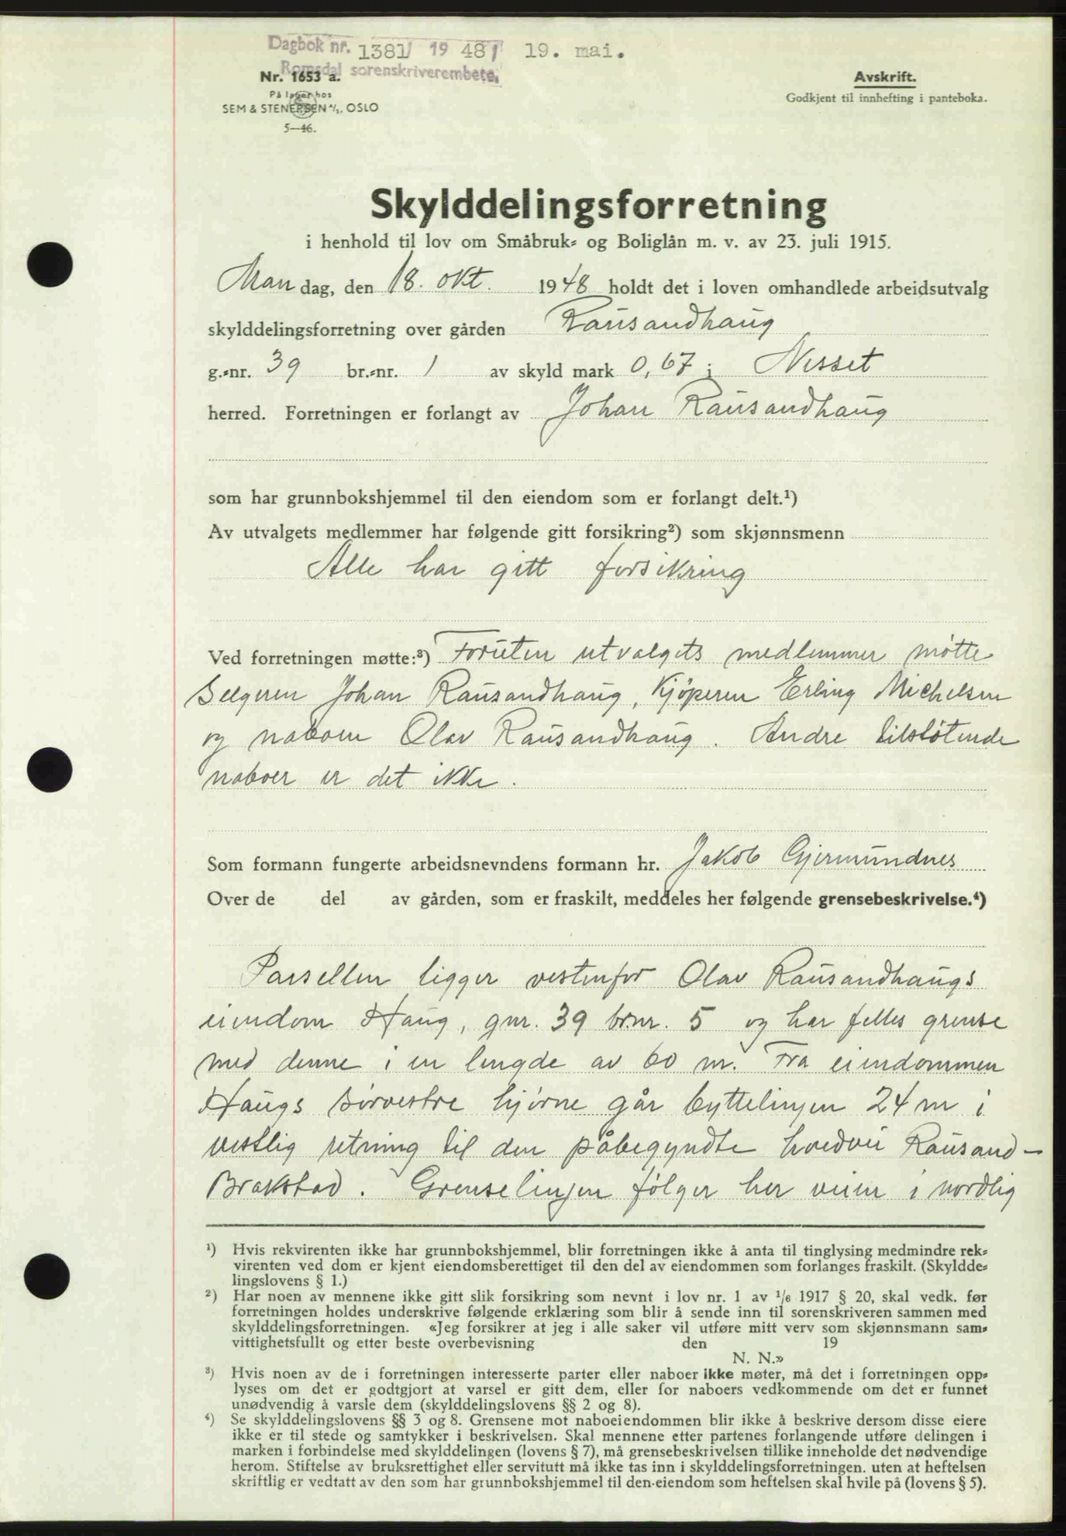 Dagbok nr. 1381/ 19 48/ 19. mai.
Romsdal sorenskriverembete
Nr. 1653 a.
På lager hos
SEM & STENERSEN A/S, OSLO
5—46.
Avskrift.
Godkjent til innhefting i panteboka.
Skylddelingsforretning
i henhold til lov om Småbruk- og Boliglån m. v. av 23. juli 1915.
Man dag, den 18. okt. 1948 holdt det i loven omhandlede arbeidsutvalg
skylddelingsforretning over gården Rausandhaug
g.-nr. 39 br.-nr. 1 av skyld mark 0,67 i Nesset
herred. Forretningen er forlangt av Johan Rausandhaug
som har grunnbokshjemmel til den eiendom som er forlangt delt.¹)
Av utvalgets medlemmer har følgende gitt forsikring²) som skjønnsmenn
Alle har gitt forsikring
Ved forretningen møtte:³) Foruten utvalgets medlemmer møtte
Selgeren Johan Rausandhaug, kjøperen Erling Michelsen
og naboen Olav Rausandhaug. Andre tilstøtende
naboer er det ikke.
Som formann fungerte arbeidsnevndens formann hr. Jakob Gjermundnes
Over de del av gården, som er fraskilt, meddeles her følgende grensebeskrivelse.⁴)
Parsellen ligger vestenfor Olav Rausandhaugs
eiendom Haug, gnr. 39 brnr. 5 og har felles grense
med denne i en lengde av 60 m. Fra eiendommen
Haugs sørvestre hjørne går byttelinjen 24 m i
vestlig retning til den påbegyndte hovedvei Rausand-
Brakstad. Grenselinjen følger her veien i nordlig
¹) Hvis rekvirenten ikke har grunnbokshjemmel, blir forretningen ikke å anta til tinglysing medmindre rek-
virenten ved dom er kjent eiendomsberettiget til den del av eiendommen som forlanges fraskilt. (Skyldde-
lingslovens § 1.)
²) Har noen av mennene ikke gitt slik forsikring som nevnt i lov nr. 1 av 1/6 1917 § 20, skal vedk. før
forretningen holdes underskrive følgende erklæring som blir å sende inn til sorenskriveren sammen med
skylddelingsforretningen. «Jeg forsikrer at jeg i alle saker vil utføre mitt verv som skjønnsmann sam-
vittighetsfullt og etter beste overbevisning den 19
N. N.»
³) Hvis noen av de i forretningen interesserte parter eller naboer ikke møter, må det i forretningen opp-
lyses om det er godtgjort at varsel er gitt dem, eller for naboers vedkommende om det er funnet
unødvendig å varsle dem (skylddelingslovens §§ 2 og 8).
⁴) Se skylddelingslovens §§ 3 og 8. Grensene mot naboeiendommen blir ikke å beskrive dersom disse eiere
ikke er til stede og samtykker i beskrivelsen. Skal mennene etter partenes forlangende utføre delingen i
marken i forbindelse med skylddelingen (lovens § 7), må grensebeskrivelsen tillike inneholde det nødvendige
herom. Stiftelse av bruksrettighet eller servitutt må ikke tas inn i skylddelingsforretningen. uten at heftelsen
skriftlig er vedtatt av den som har grunnbokshjemmel til den eiendom som heftelsen skal hvile på (lovens § 5).